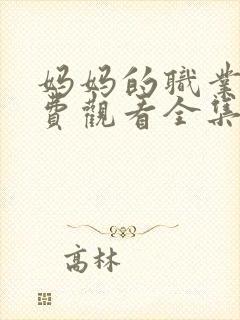 妈妈的職業
費觀看全集
高林